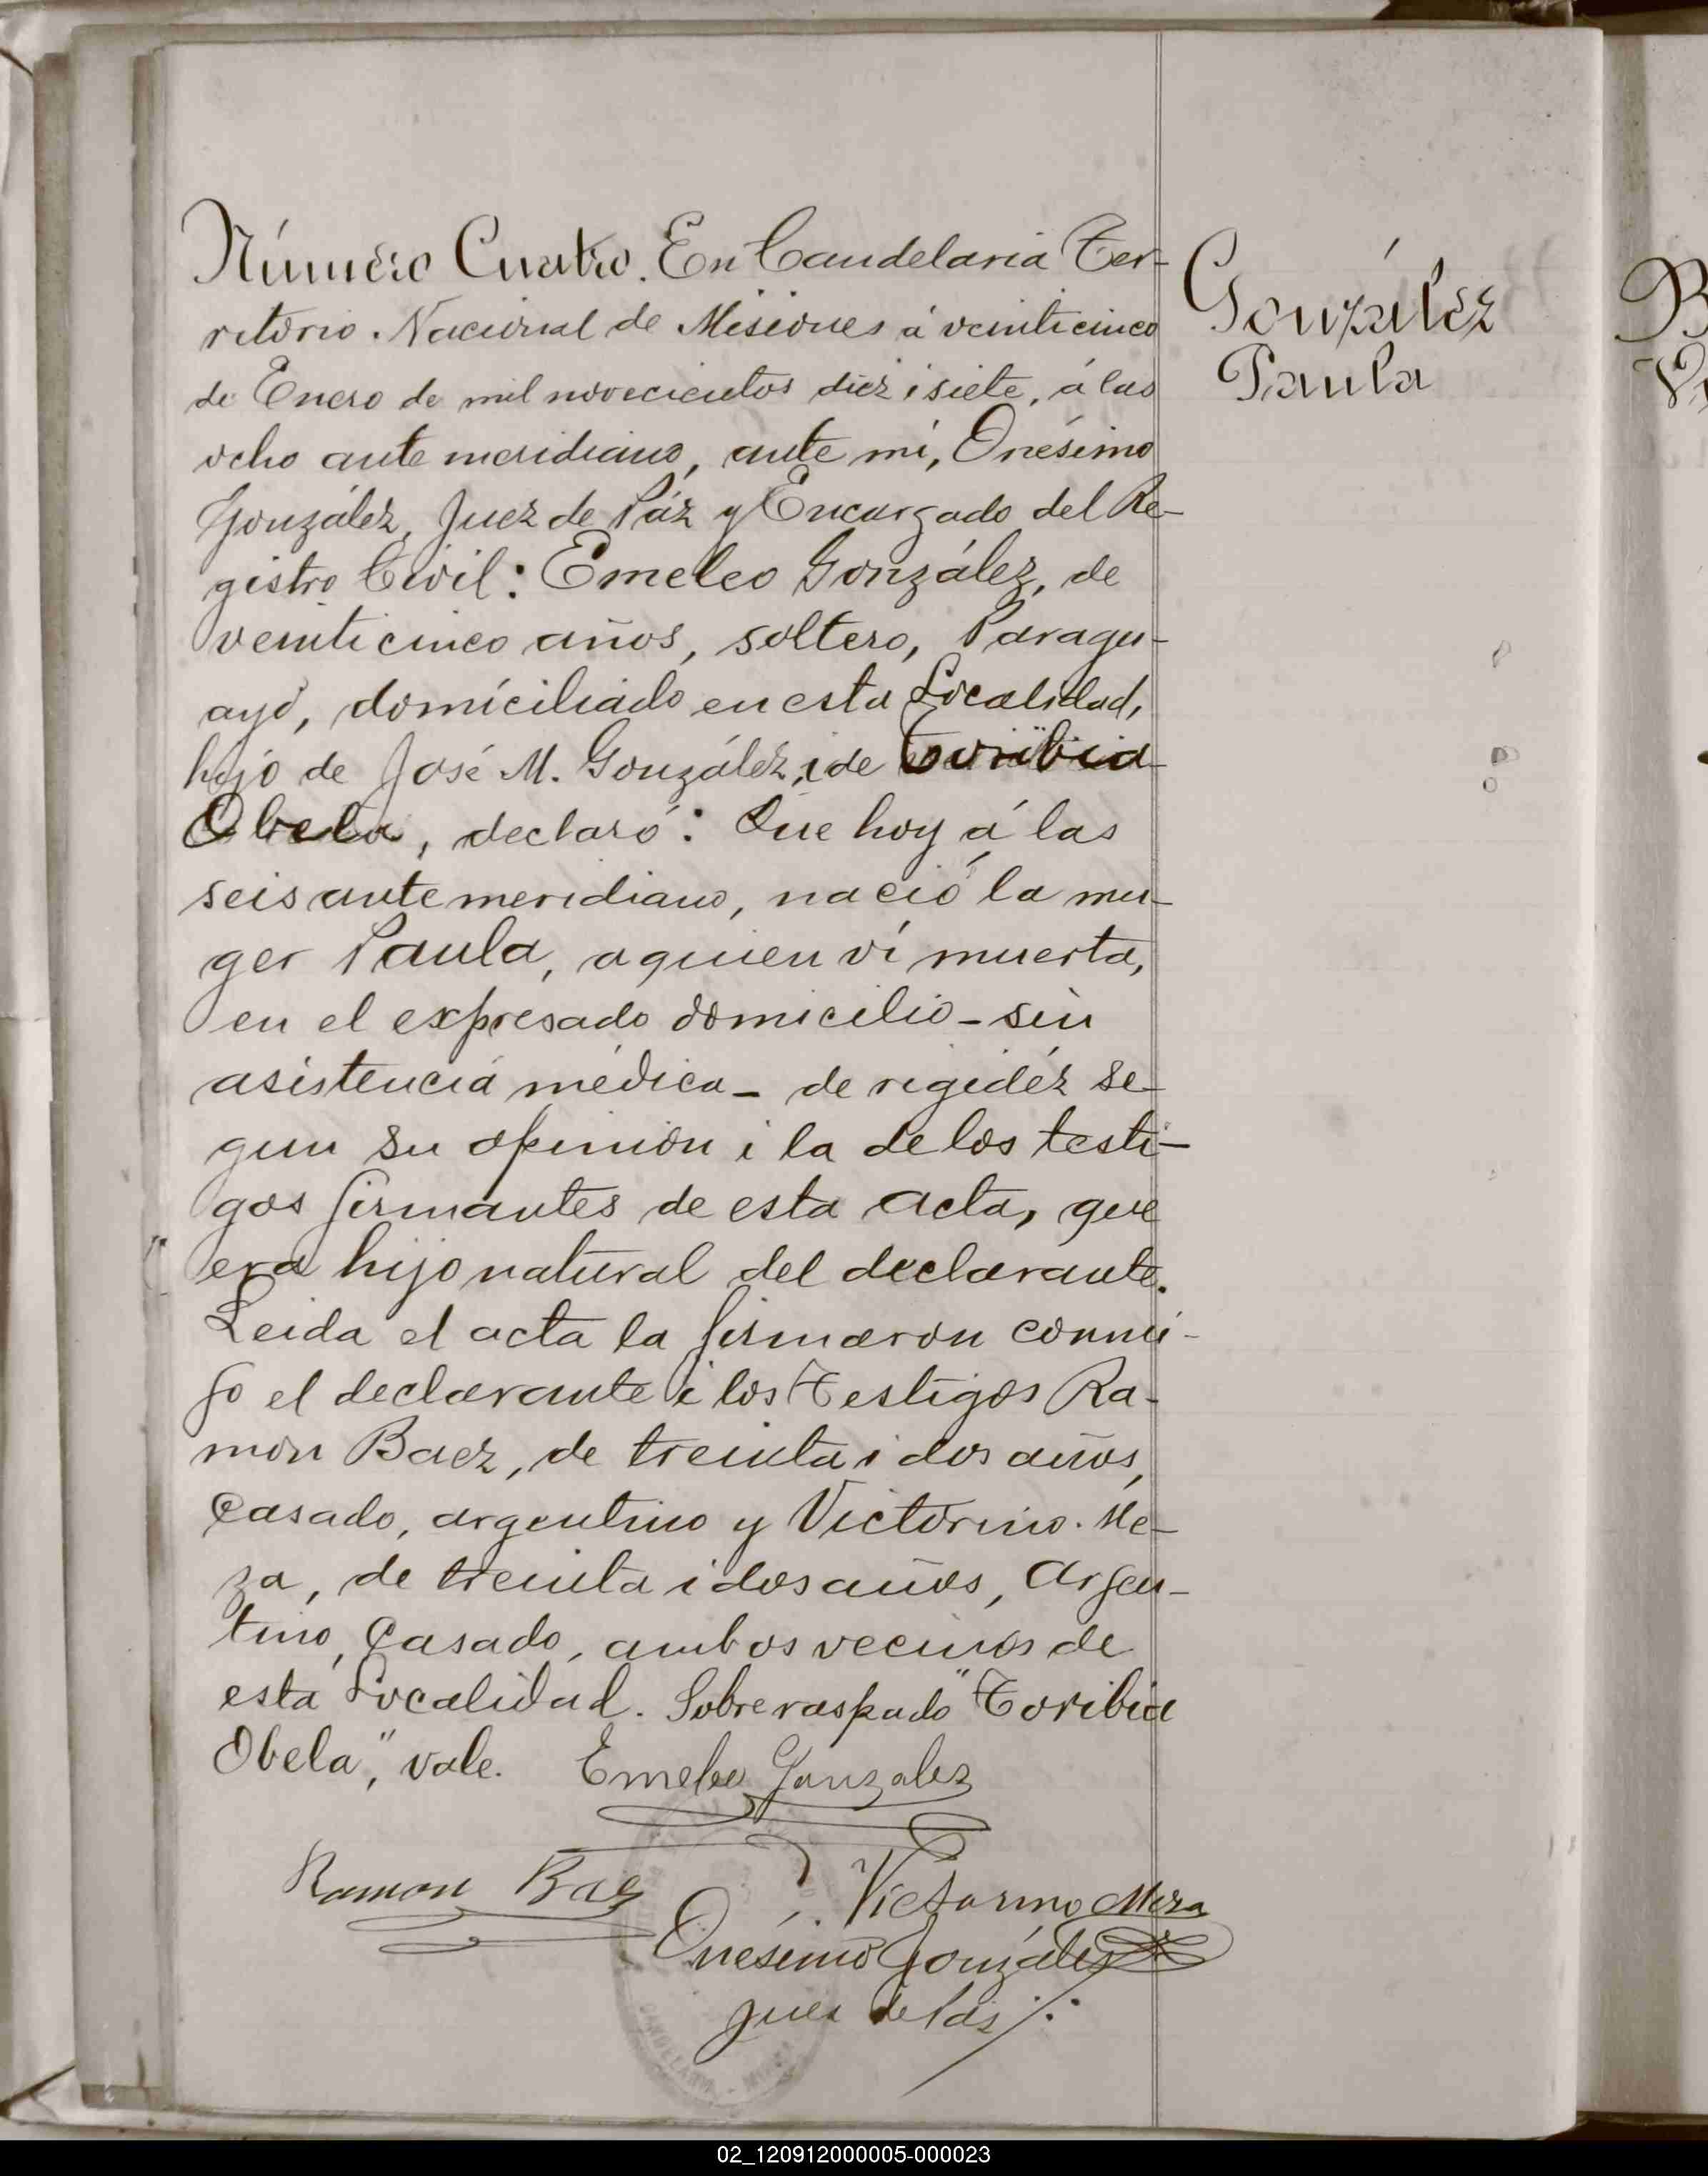 Número Cuatro. En Candelaria Ter-
ritorio Nacional de Misiones á veinticinco
de Enero de mil novecientos diez i siete, á las
ocho ante meridiano, ante mí, Onésimo
González, Juez de Páz y Encargado del Re-
gistro Civil: Emeleo González, de
veinticinco años, soltero, Paragu-
ayo, domiciliado en esta Localidad,
hijo de José M. González, i de Toribia
Obela, declaró: Que hoy á las
seis ante meridiano, nació la mu-
ger Paula, a quien ví muerta,
en el expresado domicilio - sin
asistencia médica - de rigidéz se-
gun su opinión i la de los testi-
gos firmantes de esta acta, que
era hijo natural del declarante.
Leida el acta la firmaron conmi-
go el declarante i los Testigos Ra-
món Baez, de treinta i dos años,
Casado, argentino y Victorino Me-
za, de treinta i dos años, Argen-
tino, Casado, ambos vecinos de
esta Localidad. Sobre raspado "Toribia
Obela", vale. Emeleo Gonzalez
Ramon Baez
Victorino Meza
Onésimo González
Juez de Páz
González
Paula
02_120912000005-000023